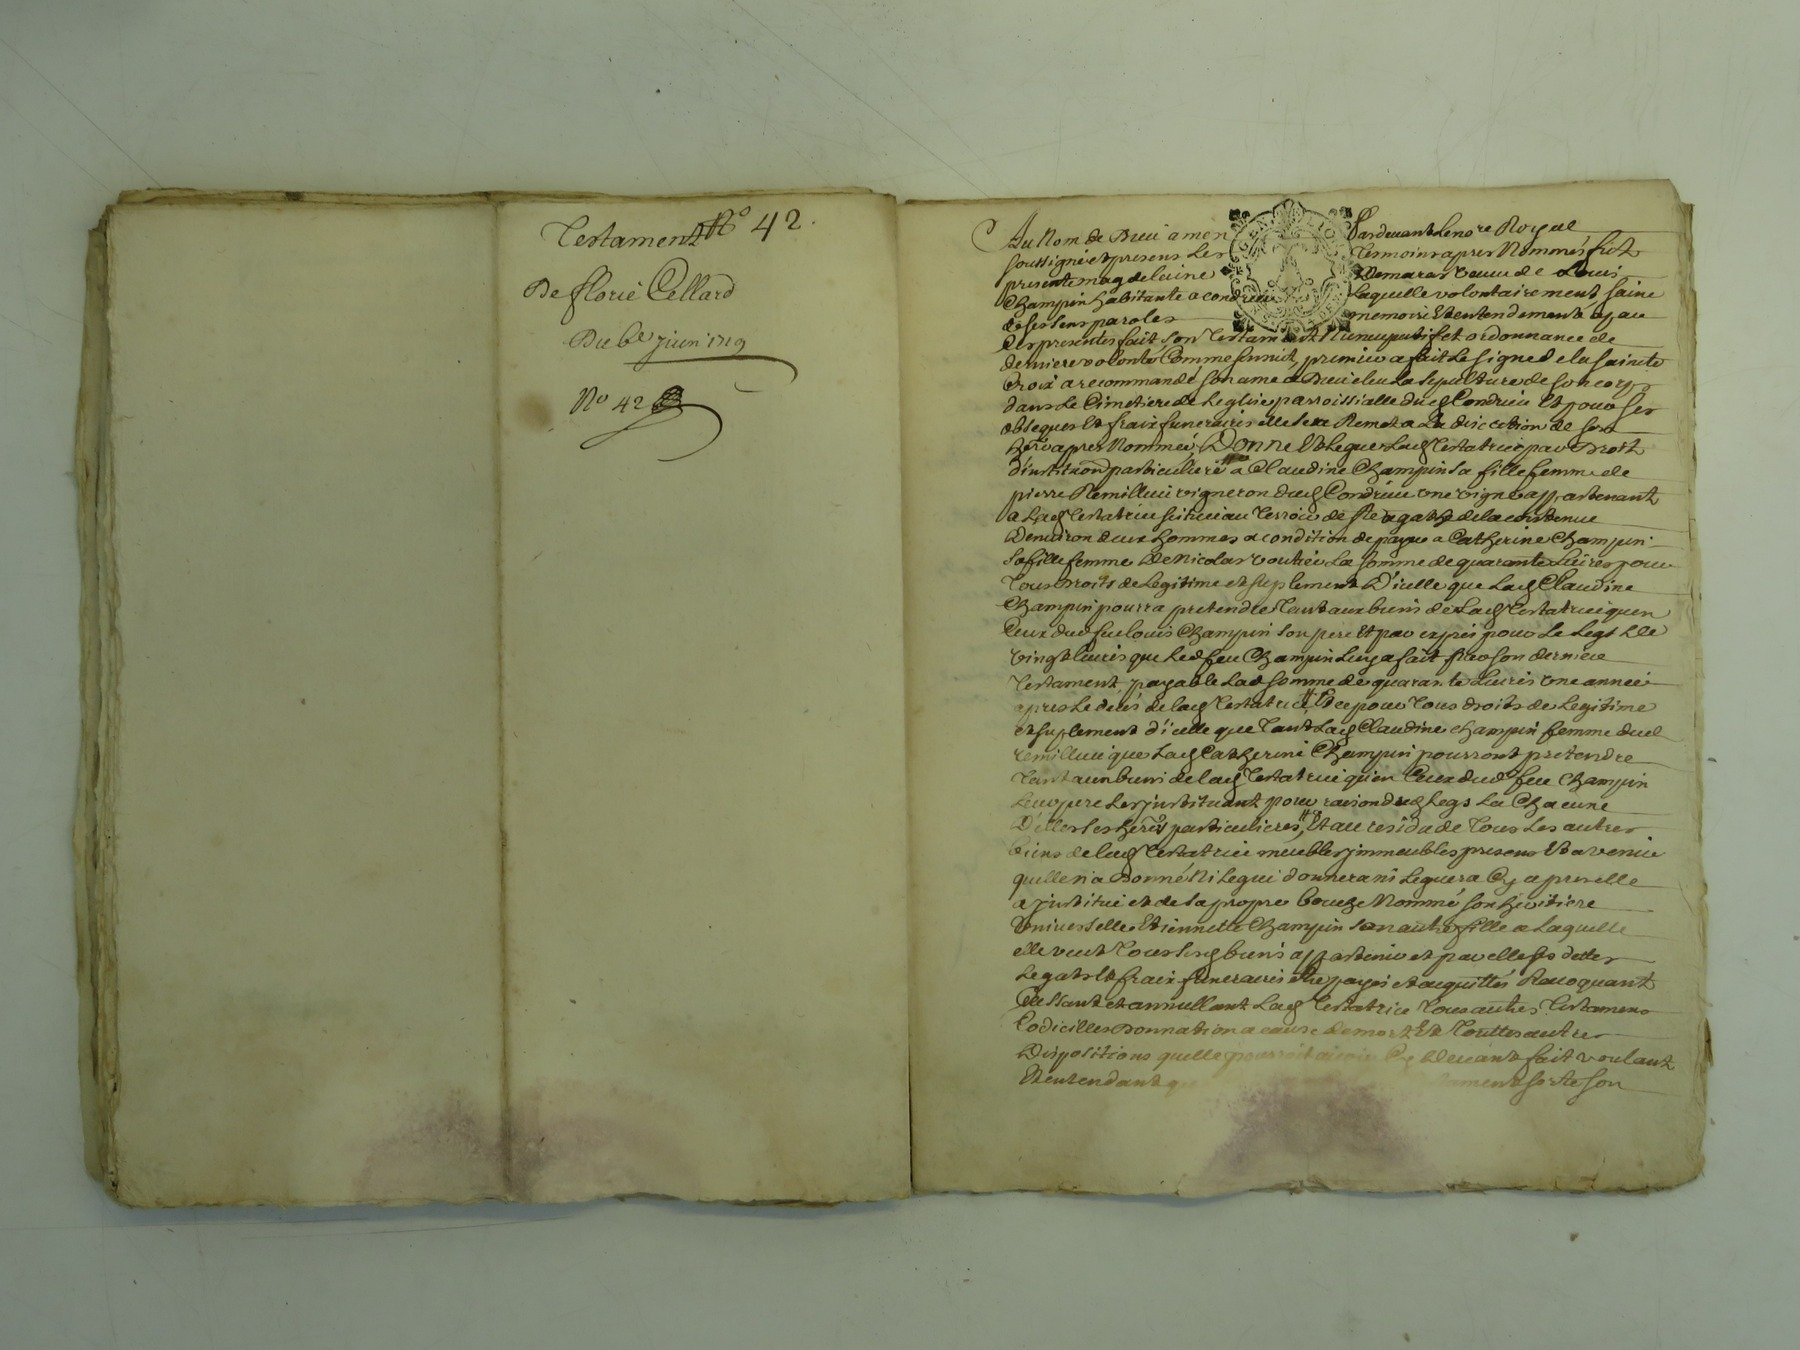 Testament N° 42.
De florie Cellard
Du 6e juin 1719
N° 42
Au Nom de Dieu amen Pardevant Le no.re Royal
soussigné et presens Les Tesmoins apres Nommés fut
presente magdelaine Demaras veuve de Louis
Champin habitante a condrieu Laquelle volontairement saine
de ses sens paroles memoire Et entendement a par
Ces presentes fait son Testament Nuncupatif et ordonnance de
derniere volonté Comme sensuit, premier a fait Le signe de la sainte
Croix a recommandé son ame a Dieu eleu La sepulture de son corps
dans Le Cimetiere de Leglise parroissialle dud Condrieu Et pour ses
obseques Et fraix funeraires elle se Remet a La discretion de son
her.e apres Nommeé, Donne Et Legue Lad Testatrice par Droit
d'institution particuliere a Claudine Champin sa fille femme de
pierre Remillieu vigneron dud Condrieu une vigne appartenant
a Lad Testatrice scituee au Terroir de de la contenue
Denviron deux hommes a condition de payer a Catherine Champin
sa fille femme De Nicolas La somme de quarante Livres pour
Tous droits de Legitime et suplement D'icelle que Lad Claudine
Champin pourra pretendre Tant aux biens de Lad Testatrice quen
Ceux dud feu Louis Champin son pere Et par exprés pour Le Legs De
vingt Livres que Led feu Champin Luy a fait par son dernier
Testament, payable Lad somme de quarante Livres une anneé
apres Le decés de lad Testatrice, Et ce pour Tous droits de Legitime
et suplement d'icelle que Tant Lad Claudine champin femme dud
remillieu que Lad Catherine Champin pourront pretendre
Tant aux biens de lad Testatrice qu'en Ceux dud feu Champin
Leur pere Les instituant pour raison dud Legs La Chacune
D'elles ses her.es particulieres, Et au residu de Tous Les autres
biens de lad Testatrice meubles immeubles presens Et avenir
quelle n'a Donné Ni Legué donnera ni Leguera Cy apres elle
a institué et de sa propre bouche Nommé son heritiere
Universelle Etiennette Champin son autre fille a Laquelle
elle veut Tous sesd biens appartenir et par elle ses dettes
Legats Et fraix funeraires etre payés et acquittés Revoquant
Cassant et annullant Lad Testatrice Tous autres Testamens
Codicilles Donnation a cause de mort Et Touttes autres
Dispositions quelle pourroit avoir Cy Devant fait voulant
Et entendant son